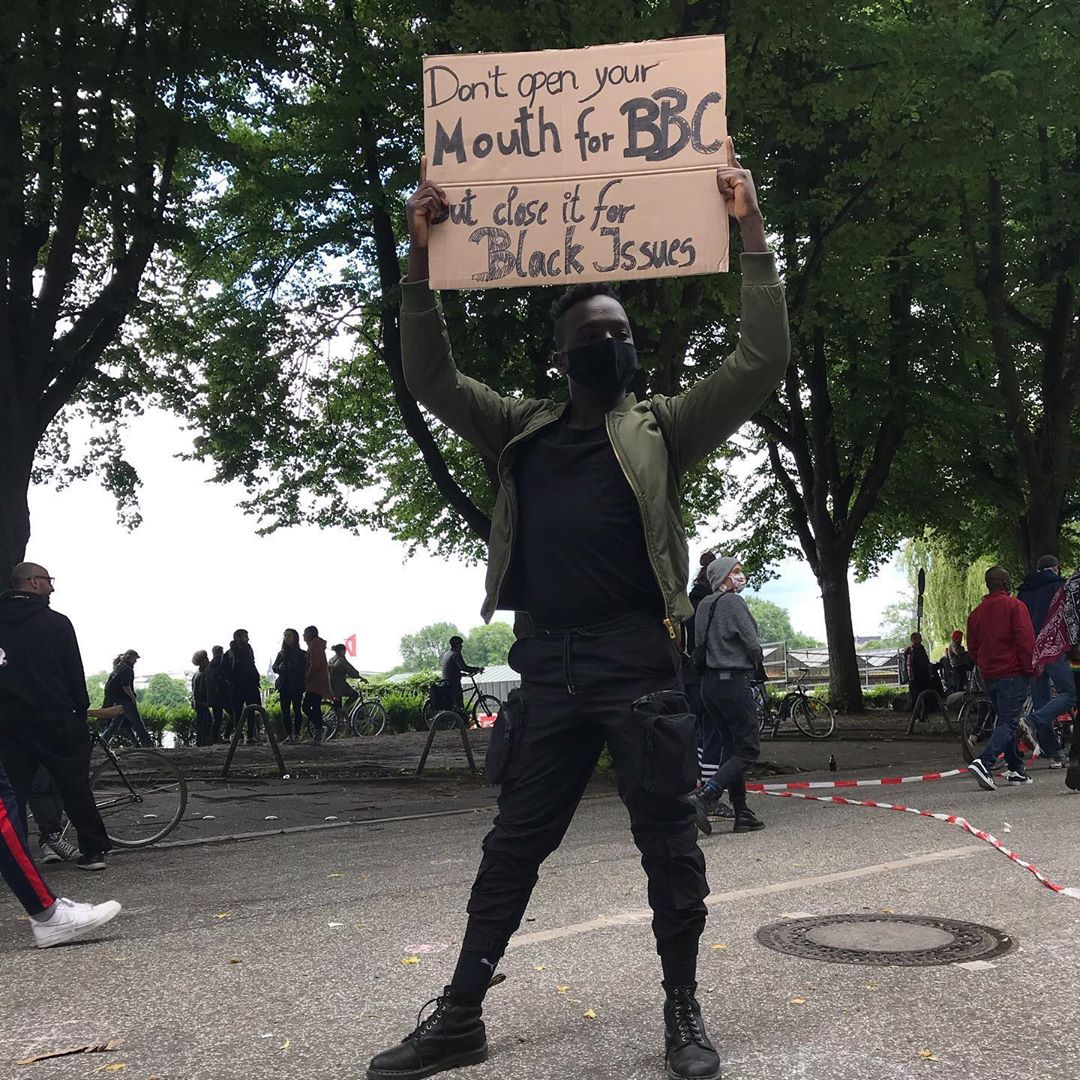 Don't open your
Mouth for BBC
but close it for
Black Issues